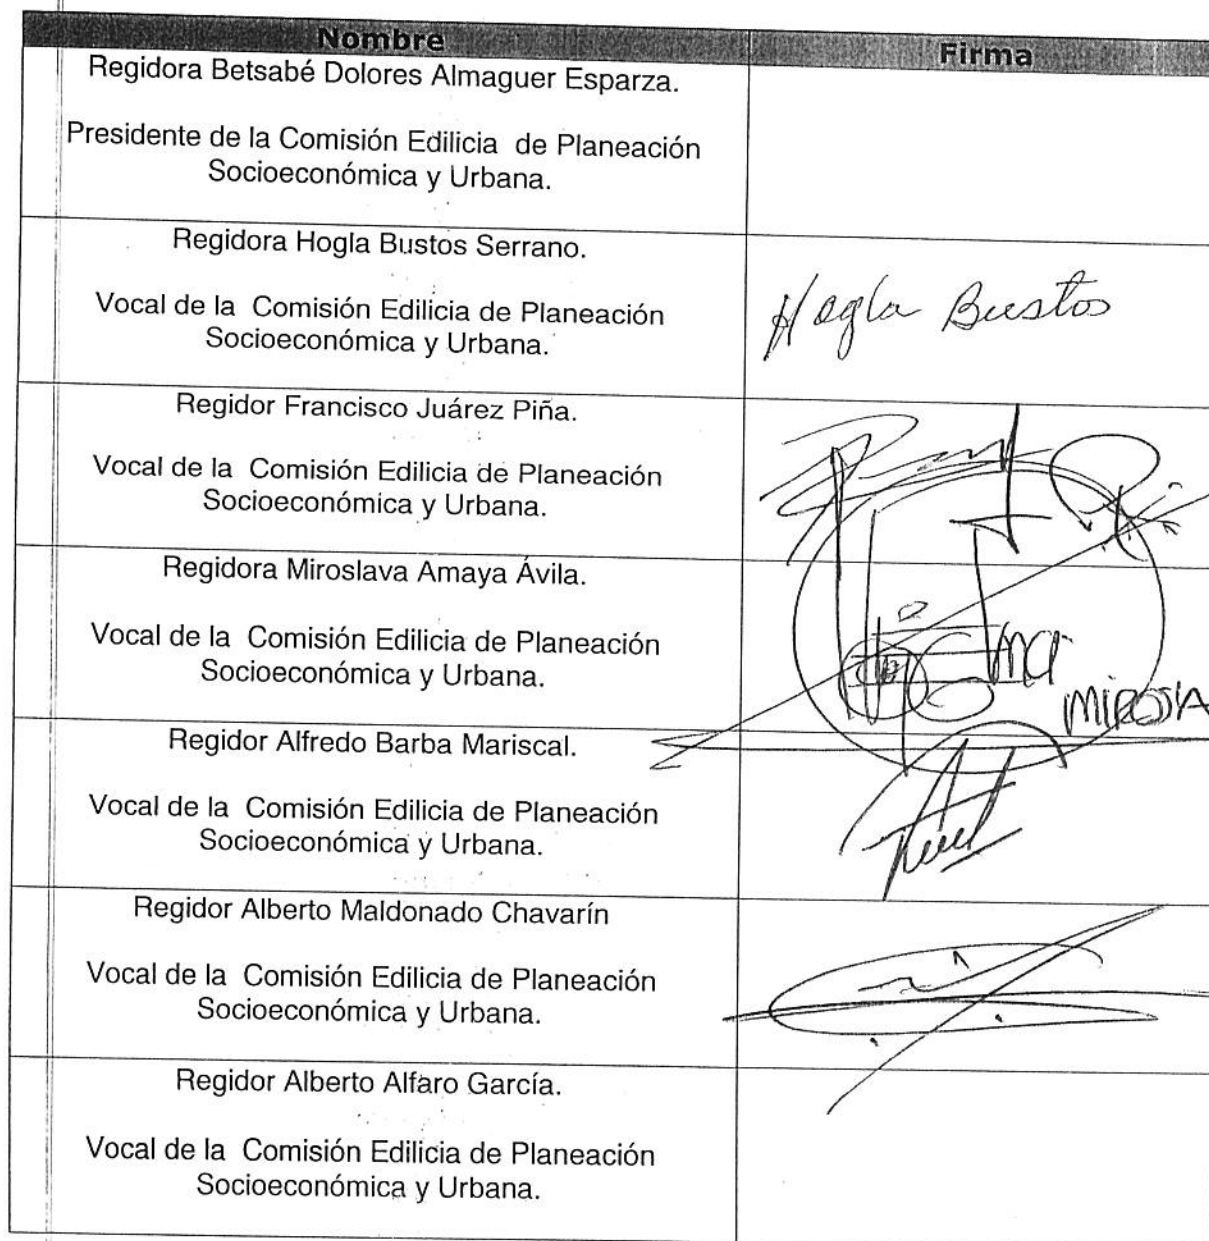 Nombre Firma
Regidora Betsabé Dolores Almaguer Esparza.
Presidente de la Comisión Edilicia de Planeación
Socioeconómica y Urbana.
Regidora Hogla Bustos Serrano.
Vocal de la Comisión Edilicia de Planeación
Socioeconómica y Urbana.
Hogla Bustos
Regidor Francisco Juárez Piña.
Vocal de la Comisión Edilicia de Planeación
Socioeconómica y Urbana.
Regidora Miroslava Amaya Ávila.
Vocal de la Comisión Edilicia de Planeación
Socioeconómica y Urbana.
Regidor Alfredo Barba Mariscal.
Vocal de la Comisión Edilicia de Planeación
Socioeconómica y Urbana.
Regidor Alberto Maldonado Chavarín
Vocal de la Comisión Edilicia de Planeación
Socioeconómica y Urbana.
Regidor Alberto Alfaro García.
Vocal de la Comisión Edilicia de Planeación
Socioeconómica y Urbana.